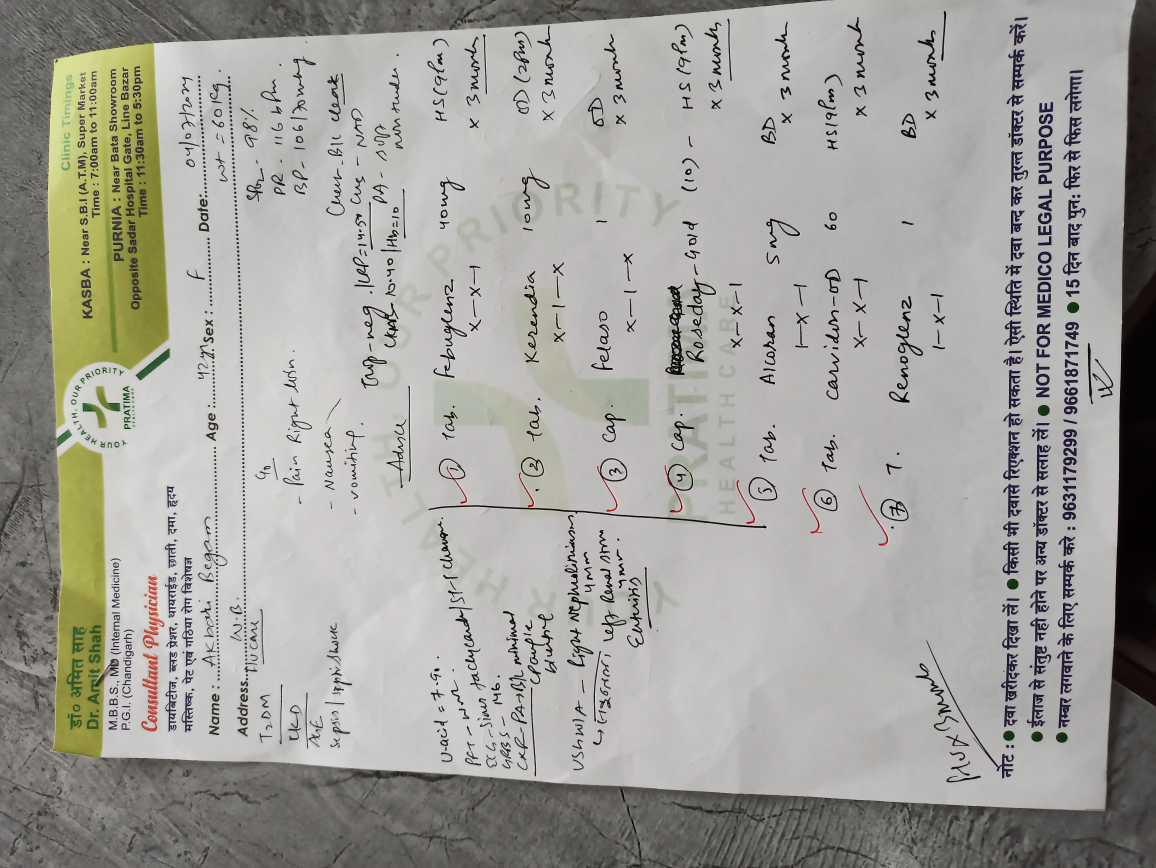 डॉ० अमित साह
Dr. Amit Shah
M.B.B.S., MD (Internal Medicine)
P.G.I. (Chandigarh)
Consultant Physician
डायबिटीज, ब्लड प्रेशर, थायराईड, छाती, दमा, हृदय
मस्तिष्क, पेट एवं गठिया रोग विशेषज्ञ
YOUR HEALTH, OUR PRIORITY
PRATIMA
Clinic Timings
KASBA : Near S.B.I (A.T.M), Super Market
Time : 7:00am to 11:00am
PURNIA : Near Bata Showroom
Opposite Sadar Hospital Gate, Line Bazar
Time : 11:30am to 5:30pm
Name : Akbari Begam Age : 42 Sex : F Date: 04/07/2024
Address W.B. wt = 60 kg.
T2DM
CKD
AGE
Sepsis / Septic shock
c/o
- Pain Right loin.
- Nausea
- vomiting.
SpO2 - 98%
PR - 116 bpm
BP - 106/70 mmHg
Chest - B/L clear
CVS - NAD
PA - soft
non tender.
Trop - neg, CRP = 14.5
Hb = 10
Advice
U. acid = 7.9
PFT - WNL.
ECG - Sinus tachycardia / ST-T changes.
GRBS - 146.
CXR - PA - B/L minimal
pleural
USG W/A - Right Nephrolithiasis 4mm
left Renal stone 4mm.
Enteritis
① Tab. Febuglenz 40mg HS (9pm)
x-x-1 x 3 month
② Tab. Kerendia 10mg OD (2pm)
x-1-x x 3 month
③ Cap. Felaso 1 OD
x-1-x x 3 month
④ Cap. Roseday-Gold (10) - HS (9pm)
x-x-1 x 3 months
⑤ Tab. Alcoran 5mg BD
1-x-1 x 3 month
⑥ Tab. Carvidon-OD 60 HS (9pm)
x-x-1 x 3 month
⑦ T. Renoglenz 1 BD
1-x-1 x 3 months
YOUR HEALTH OUR PRIORITY
PRATIMA
HEALTH CARE
x 3 month
नोट : ● दवा खरीदकर दिखा लें। ● किसी भी दवासे रिएक्शन हो सकता है। ऐसी स्थिति में दवा बन्द कर तुरन्त डॉक्टर से सम्पर्क करें।
● ईलाज से संतुष्ट नही होने पर अन्य डॉक्टर से सलाह लें। ● NOT FOR MEDICO LEGAL PURPOSE
● नम्बर लगवाने के लिए सम्पर्क करे : 9631179299 / 9661871749 ● 15 दिन बाद पुनः फिर से फिस लगेगा।